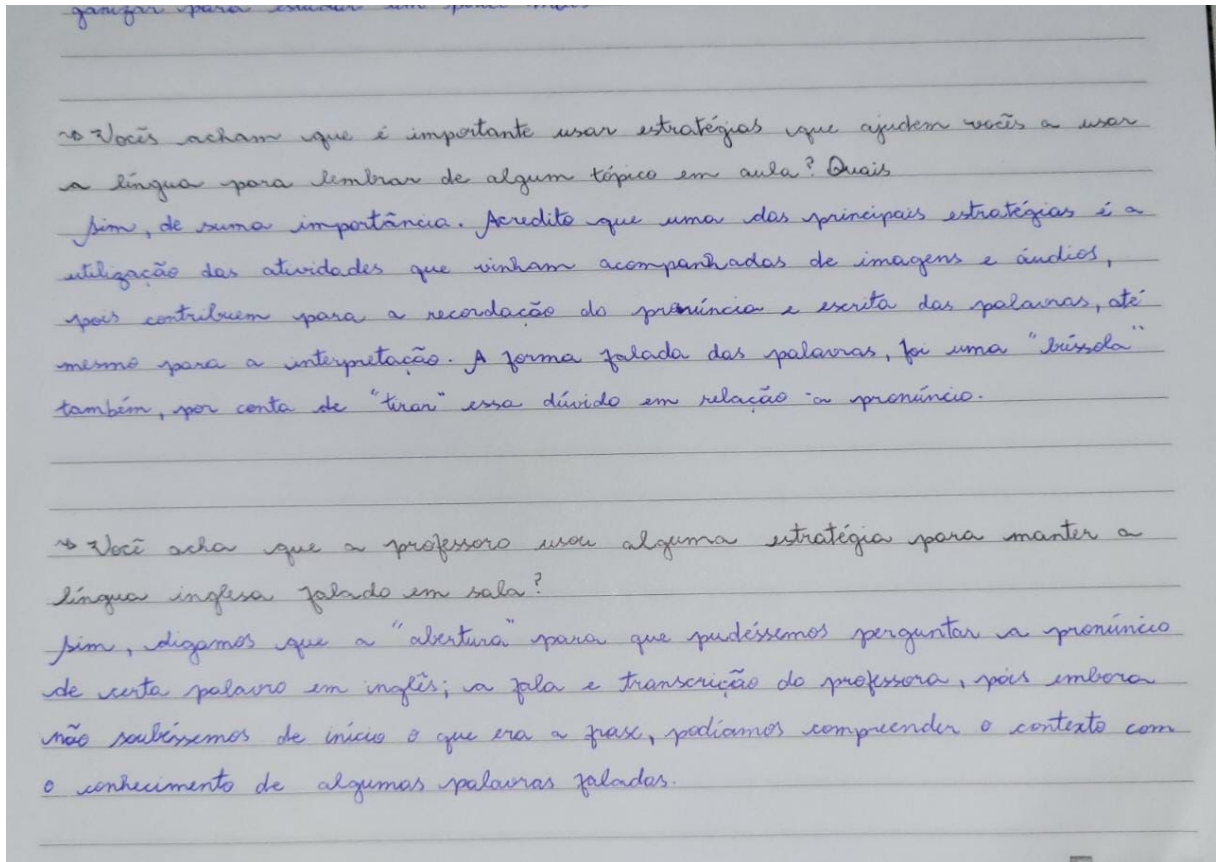 ganizar para estudar um pouco mais
~> Vocês acham que é importante usar estratégias que ajudem vocês a usar
a língua para lembrar de algum tópico em aula? Quais
Sim, de suma importância. Acredito que uma das principais estratégias é a
utilização das atividades que vinham acompanhadas de imagens e áudios,
pois contribuem para a recordação da pronúncia e escrita das palavras, até
mesmo para a interpretação. A forma falada das palavras, foi uma "bússola"
também, por conta de "tirar" essa dúvida em relação a pronúncia.
~> Você acha que a professora usou alguma estratégia para manter a
língua inglesa falada em sala?
Sim, digamos que a "abertura" para que pudéssemos perguntar a pronúncia
de certa palavra em inglês; a fala e transcrição da professora, pois embora
não soubéssemos de início o que era a frase, podíamos compreender o contexto com
o conhecimento de algumas palavras faladas.